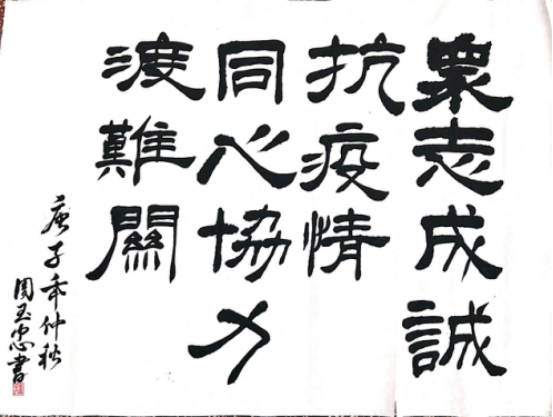 眾志成誠
抗疫情
同心協力
渡難關
庚子年仲秋
周玉忠書